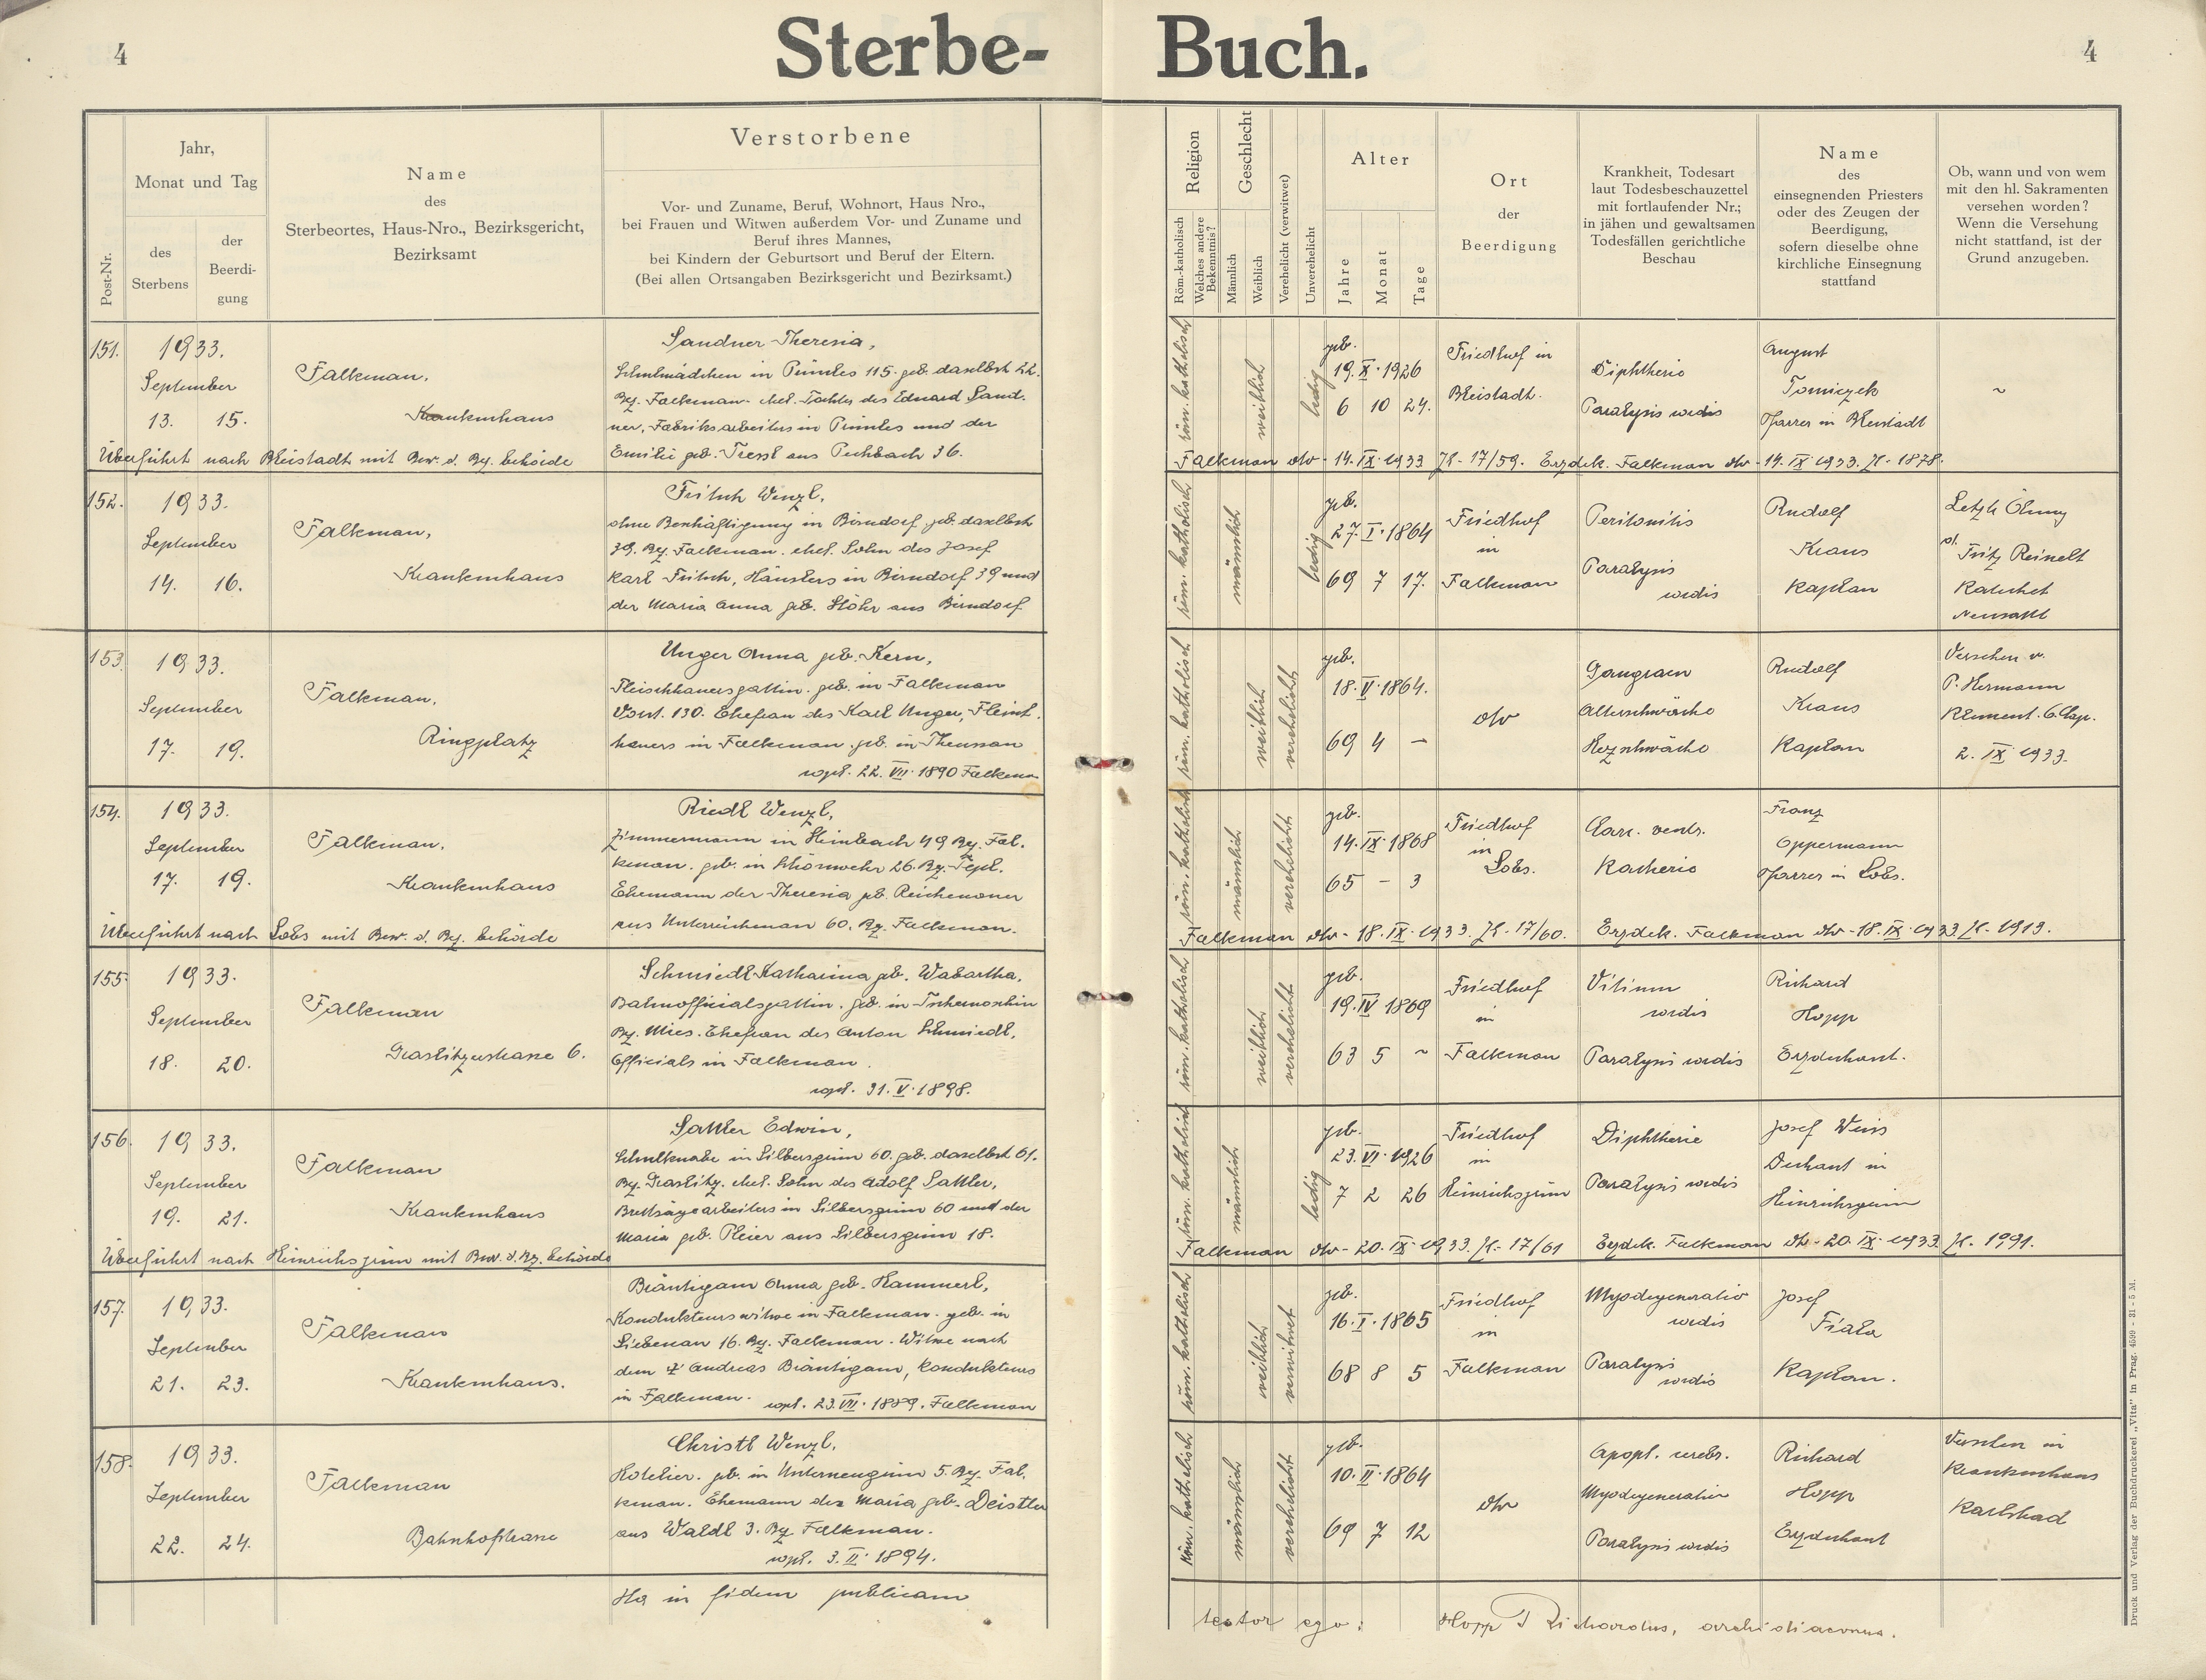 4
Sterbe-
Buch.
4
Post-Nr.
Jahr,
Monat und Tag
des
Sterbens
der
Beerdi-
gung
Name
des
Sterbeortes, Haus-Nro., Bezirksgericht,
Bezirksamt
Verstorbene
Vor- und Zuname, Beruf, Wohnort, Haus Nro.,
bei Frauen und Witwen außerdem Vor- und Zuname und
Beruf ihres Mannes,
bei Kindern der Geburtsort und Beruf der Eltern.
(Bei allen Ortsangaben Bezirksgericht und Bezirksamt.)
Religion
Röm.-katholisch
Welches andere
Bekenntnis?
Geschlecht
Männlich
Weiblich
Verehelicht (verwitwet)
Unverehelicht
Alter
Jahre
Monat
Tage
Ort
der
Beerdigung
Krankheit, Todesart
laut Todesbeschauzettel
mit fortlaufender Nr.;
in jähen und gewaltsamen
Todesfällen gerichtliche
Beschau
Name
des
einsegnenden Priesters
oder des Zeugen der
Beerdigung,
sofern dieselbe ohne
kirchliche Einsegnung
stattfand
Ob, wann und von wem
mit den hl. Sakramenten
versehen worden?
Wenn die Versehung
nicht stattfand, ist der
Grund anzugeben.
151.
1933.
September
13. 15.
Falkenau,
Krankenhaus
Sandner Theresia,
Schulmädchen in Prünles 115. geb. daselbst 22.
Bez. Falkenau. ehel. Tochter des Eduard Sand-
ner, Fabriksarbeiters in Prünles und der
Emilie geb. Tressl aus Pechbach 36.
röm. katholisch
weiblich
ledig
geb.
19. X. 1926
6 10 24.
Friedhof in
Bleistadt.
Diphtherie
Paralysis cordis
August
Tomiczek
Pfarrer in Bleistadt
~
Überführt nach Bleistadt mit Bew. d. Bez. behörde
Falkenau dto - 14. IX. 1933 Zl. - 17/59. Erzdek. Falkenau dto - 14. IX. 1933. Zl. - 1878.
152.
1933.
September
14. 16.
Falkenau,
Krankenhaus
Fritsch Wenzl,
ohne Beschäftigung in Birndorf, geb. daselbst
39. Bez. Falkenau. ehel. Sohn des Josef
Karl Fritsch, Häuslers in Birndorf 39 und
der Maria Anna geb. Stöhr aus Birndorf
röm. katholisch
männlich
ledig
geb.
27. I. 1864
69 7 17.
Friedhof
in
Falkenau
Peritonitis
Paralysis
cordis
Rudolf
Kraus
Kaplan
Letzte Ölung
d. Fritz Reinelt
Katechet
Neusattl
153.
1933.
September
17. 19.
Falkenau,
Ringplatz
Unger Anna geb. Kern,
Fleischhauersgattin. geb. in Falkenau
Vorst. 130. Ehefrau des Karl Unger, Fleisch-
hauers in Falkenau. geb. in Theussau
copul. 22. VII. 1890 Falkenau
röm. katholisch
weiblich
verehelicht
geb.
18. V. 1864.
69 4 —
dto
Gangraen
Altersschwäche
Herzschwäche
Rudolf
Kraus
Kaplan
Versehen v.
P. Hermann
Klement. O. Cap.
2. IX. 1933.
154.
1933.
September
17. 19.
Falkenau,
Krankenhaus
Riedl Wenzl,
Zimmermann in Steinbach 49 Bez. Fal-
kenau. geb. in Schönwehr 26. Bez. Tepl.
Ehemann der Theresia geb. Reichenauer
aus Unterreichenau 60. Bez. Falkenau.
röm. katholisch
männlich
verehelicht
geb.
14. IX. 1868
65 - 3
Friedhof
in
Lobs.
Carc. ventr.
Kachexie
Franz
Oppermann
Pfarrer in Lobs.
Überführt nach Lobs mit Bew. d. Bez. behörde
Falkenau dto - 18. IX. 1933. Zl. - 17/60. Erzdek. Falkenau dto - 18. IX. 1933 Zl. - 1913.
155.
1933.
September
18. 20.
Falkenau
Graslitzerstrasse 6.
Schmiedl Katharina geb. Wabartha,
Bahnofficialsgattin. geb. in Tschernoschin
Bez. Mies. Ehefrau des Anton Schmiedl,
Officials in Falkenau.
copul. 31. V. 1898.
röm. katholisch
weiblich
verehelicht
geb.
19. IV 1869
63 5 ~
Friedhof
in
Falkenau
Vitium
cordis
Paralysis cordis
Richard
Hopp
Erzdechant.
156.
1933.
September
19. 21.
Falkenau
Krankenhaus
Sattler Edwin,
Schulknabe in Silbersgrün 60. geb. daselbst 61.
Bez. Graslitz. ehel. Sohn des Adolf Sattler,
Brettsägearbeiters in Silbersgrün 60 und der
Maria geb. Pleier aus Silbersgrün 18.
röm. katholisch
männlich
ledig
geb.
23. VI. 1926
7 2 26
Friedhof
in
Heinrichsgrün
Diphtherie
Paralysis cordis
Josef Weiss
Dechant in
Heinrichsgrün
Überführt nach Heinrichsgrün mit Bew. d. Bz. behörde
Falkenau dto - 20. IX. 1933. Zl. - 17/61 Erzdek. Falkenau dto - 20. IX. 1933 Zl. 1991.
157.
1933.
September
21. 23.
Falkenau
Krankenhaus.
Bräutigam Anna geb. Hammerl,
Kondukteurswitwe in Falkenau. geb. in
Liebenau 16. Bz. Falkenau. Witwe nach
dem † Andreas Bräutigam, Kondukteurs
in Falkenau. copul. 23. VII. 1889. Falkenau
röm. katholisch
weiblich
verwitwet
geb.
16. I. 1865
68 8 5
Friedhof
in
Falkenau
Myodegeneratio
cordis
Paralysis
cordis
Josef
Fiala
Kaplan.
158.
1933.
September
22. 24.
Falkenau
Bahnhofstrasse
Christl Wenzl,
Hotelier. geb. in Unterneugrün 5. Bez. Fal-
kenau. Ehemann der Maria geb. Deistler
aus Waldl 3. Bez. Falkenau.
copul. 3. II. 1894.
röm. katholisch
männlich
verehelicht
geb.
10. II. 1864
69 7 12
dto
Apopl. cerebr.
Myodegeneratio
Paralysis cordis
Richard
Hopp
Erzdechant
Versehen in
Krankenhaus
Karlsbad
Ita in fidem publicam
testor ego: Hopp Richardus, archidiaconus.
Druck und Verlag der Buchdruckerei „Vita" in Prag. 4599 - 31 - 5 M.